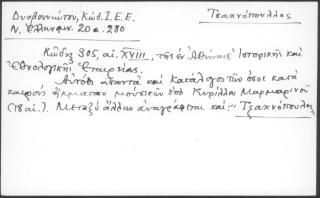 Δυοβουνιώτου, Κώδ. Ι.Ε.Ε. Τσακνόπουλλος
Ν. Ἑλληνομν. 20ε. 280
Κῶδηξ 305, αἰ. XVIII, τῆς ἐν Ἀθήναις Ἱστορικῆς καὶ
Ἐθνολογικῆς Ἑταιρείας.
Αὐτόθι ἀπαντᾷ καὶ Κατάλογος τῶν ὅσοι κατὰ
καιροὺς ἤκμασαν μουσικῶν ὑπὸ Κυρίλλου Μαρμαρινοῦ
(18 αἰ.). Μεταξὺ ἄλλων ἀναγράφεται καί: "Τζακνόπουλος